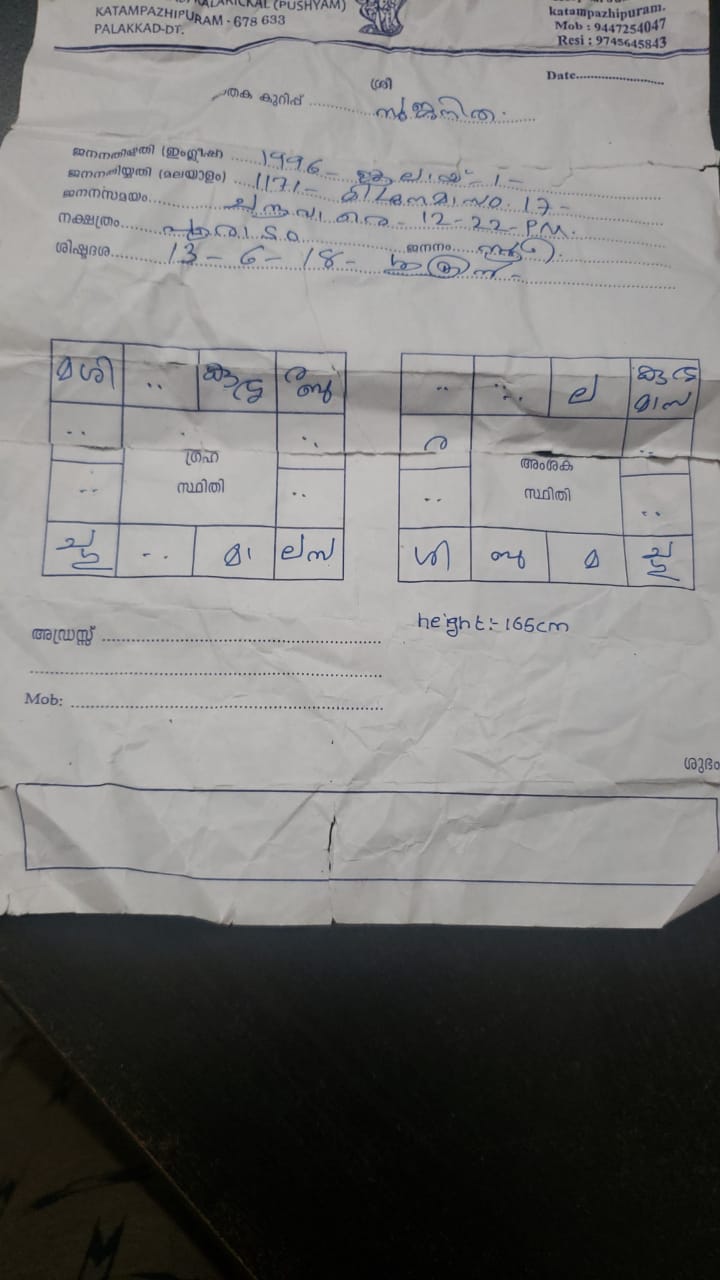 KALARICKAL (PUSHYAM)
KATAMPAZHIPURAM - 678 633
PALAKKAD-DT.
katampazhipuram.
Mob : 9447254047
Resi : 9745645843
Date
ശ്രീ
ജാതക കുറിപ്പ്
ജനനതിയ്യതി (ഇംഗ്ലീഷ്) 1996 - ജൂലായ് - 1 -
ജനനതിയ്യതി (മലയാളം) 1171 - മിഥുനമാസം 17 -
ജനനസമയം 12-22- P.M.
നക്ഷത്രം പൂരാടം ജനനം
ശിഷ്ടദശ 13 - 6 - 18 - ശുക്രൻ -
മ ശി .. കു ശു ര ബു
.. ..
ഗ്രഹ
സ്ഥിതി
.. ..
ച ഗു .. മാ ല സ
.. .. ല കു ശു മാ സ
ര ..
അംശക
സ്ഥിതി
.. ..
ശി ബു മ ച ഗു
height:- 165cm
അഡ്രസ്സ്
Mob:
ശുഭം